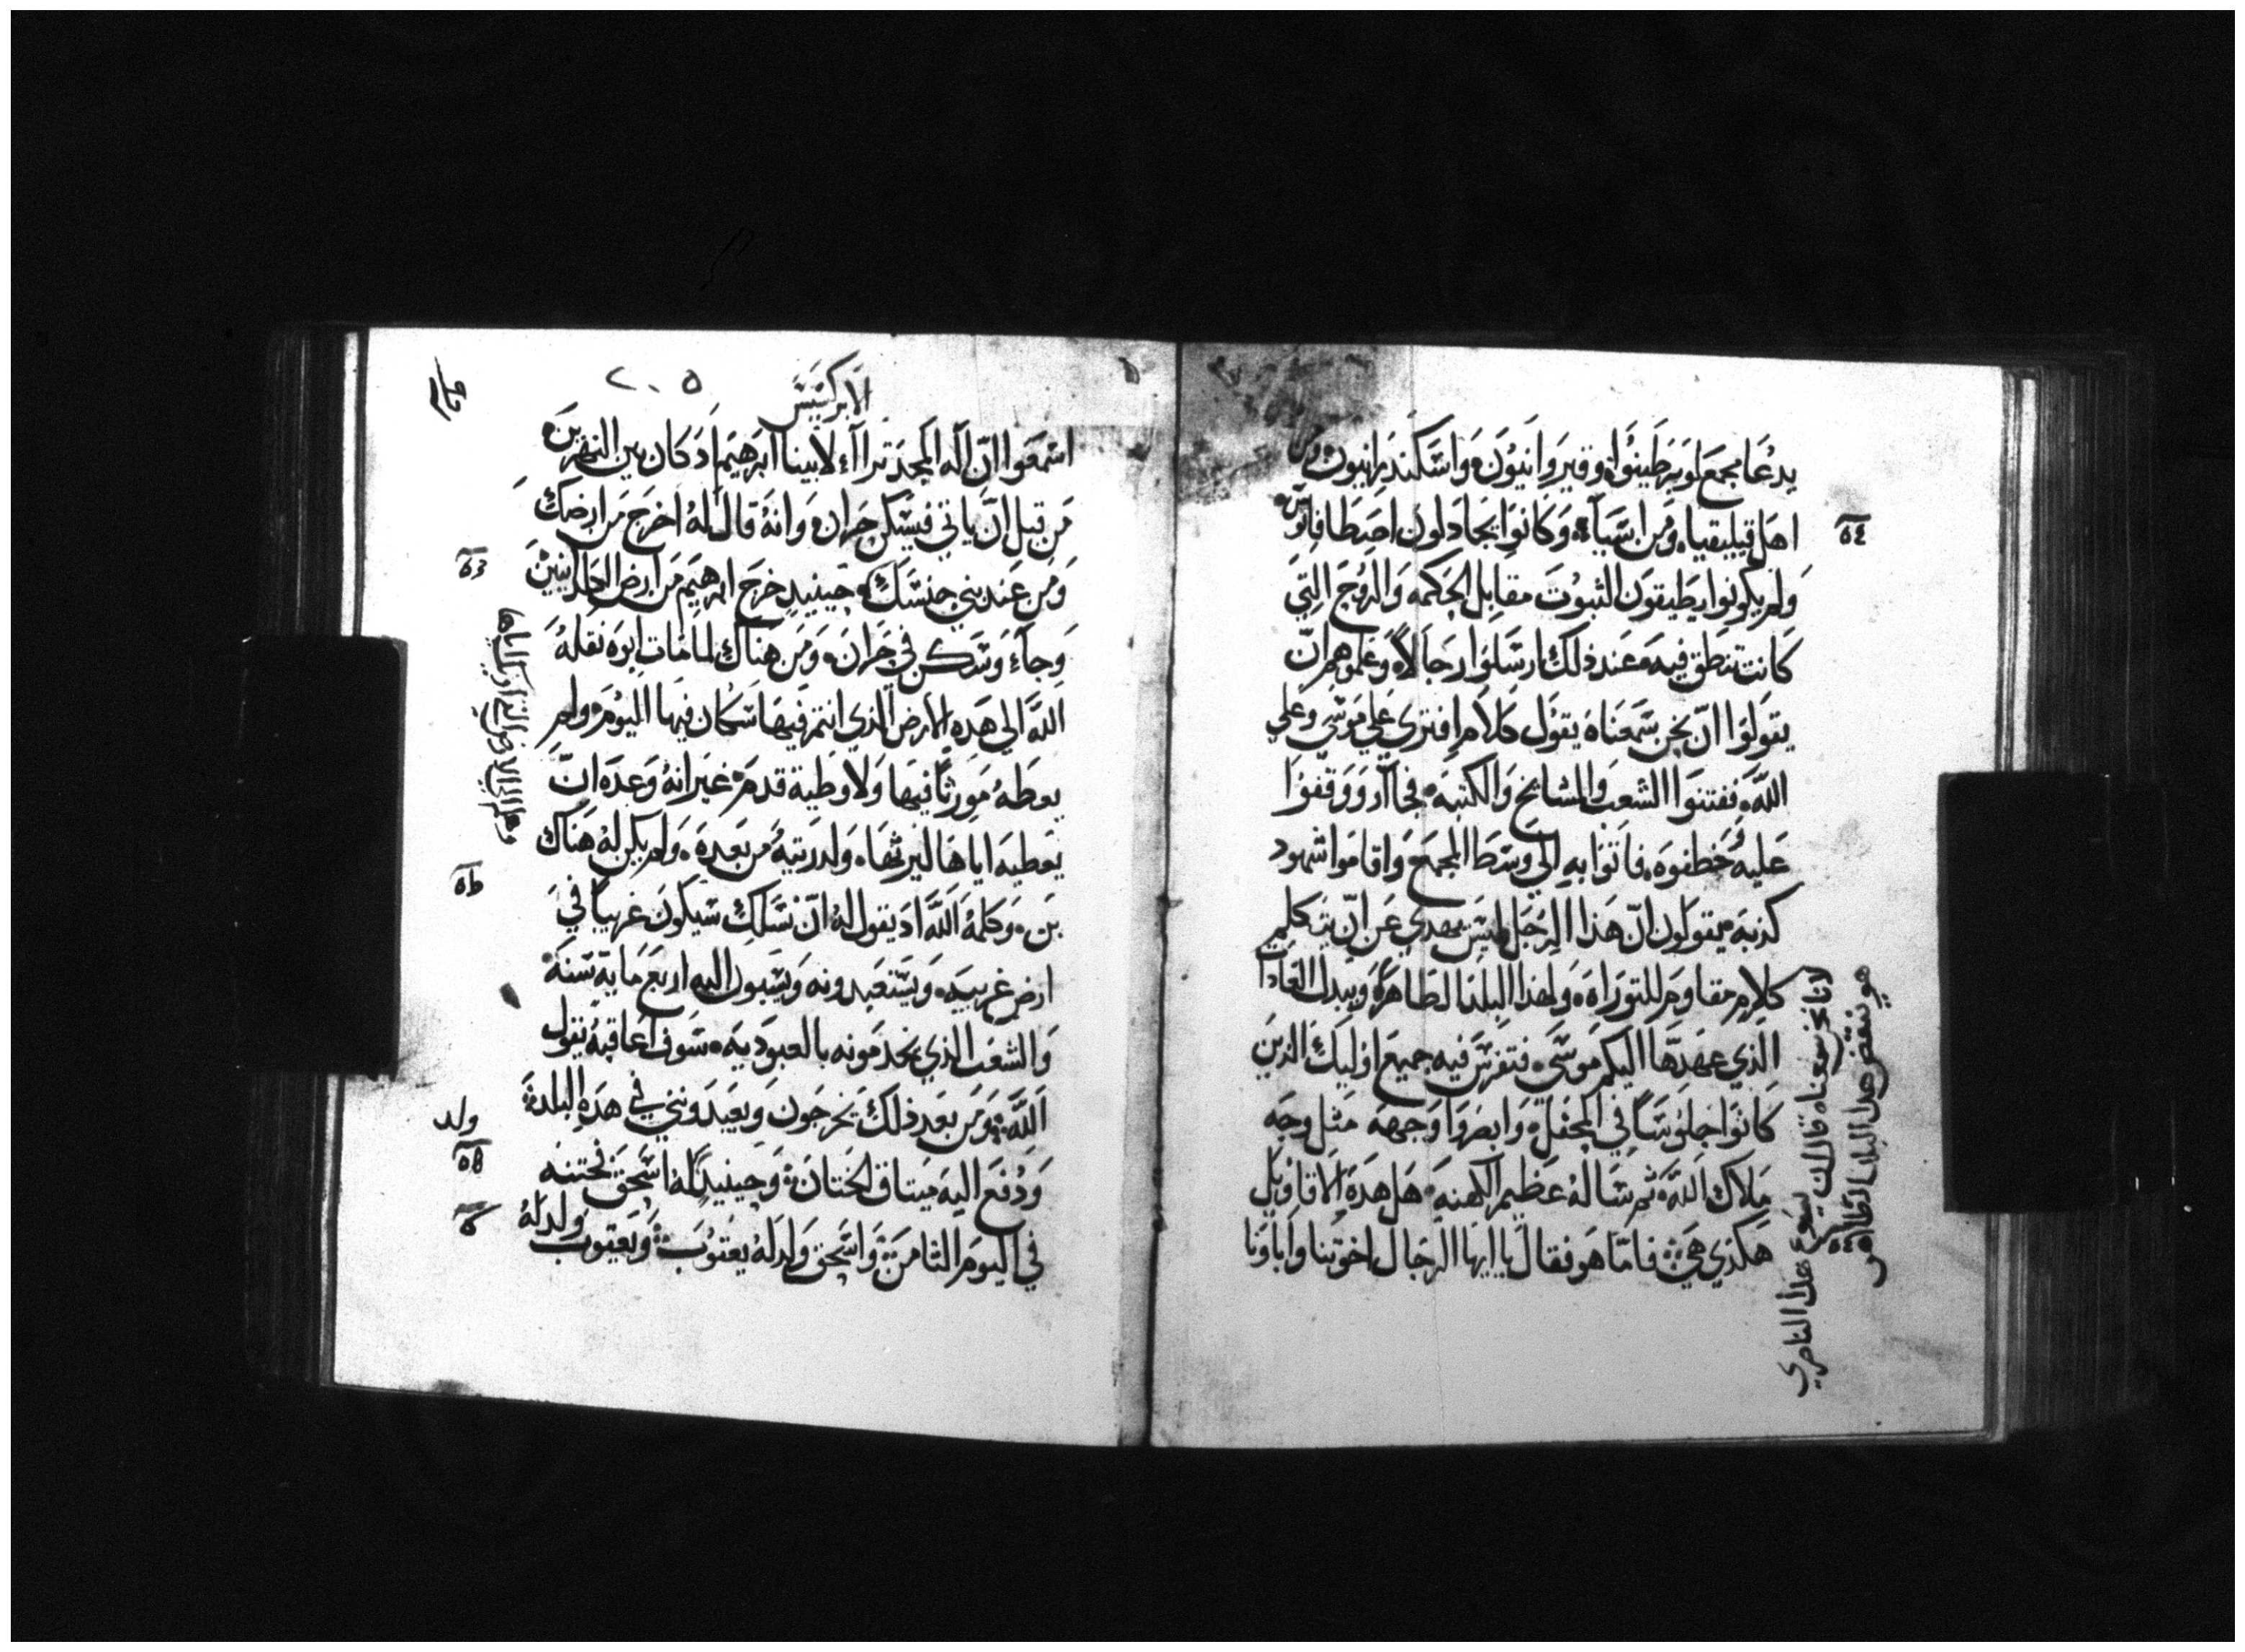 يدعا مجمع لوبرطينوا وقيروانيون واسكندرانيون ومن
اهل قيليقيا ومن اسيا وكانوا يجادلون اصطافانوس
ولم يكونوا يطيقون الثبوت مقابل الحكمه والروح التي
كانت تنطق فيه عند ذلك ارسلوا رجالا وعلموهم ان
يقولوا ان نحن سمعناه يقول كلام افتري علي موسي وعلي
الله ففتنوا الشعب والمشايخ والكتبه فجاآو ووقفوا
عليه خطفوه فاتوا به الي وسط المجمع واقاموا شهود
كذبه يقولون ان هذا الرجل ليس يهدي عن ان يتكلم
كلام مقاوم للتوراه ولهذا البلد الطاهره ويبدل العادات
الذي عهدها اليكم موسي فتفرس فيه جميع اوليك الذين
كانوا جلوسا في المحفل وابصروا وجهه مثل وجه
ملاك الله ثم ساله عظيم الكهنه هل هده الاقاويل
هكذي هي فاما هو فقال يا ايها الرجال اخوتنا واباونا
لانا نحن سمعناه قال ان يسوع هذا الناصري
هو ينقض هذا البلد الطاهر
الابركسيس
٢٠٥
استمعوا ان اله المجد ترااا لابينا ابرهيم اد كان بين النهرين
من قبل ان ياتي فيسكن حران وانه قال له اخرج من ارضك
ومن عند بني جنسك حينيد خرج ابرهيم من ارض الكلدانيين
وجاء وسكن في حران ومن هناك لما مات ابوه نقله
الله الي هده الارض الذي انتم فيها سكان فيها اليوم ولم
يعطه مورثا فيها ولا وطية قدم غير انه وعده ان
يعطيه اياها ليرثها ولدريته من بعده ولم يكن له هناك
بن وكلمه الله اد يقول له ان نسلك سيكون غريبا في
ارض غريبه ويستعبدونه ويسيون اليه اربع ماية سنه
والشعب الذي يخدمونه بالعبوديه سوف اعاقبه يقول
الله ومن بعد ذلك يخرجون ويعبدونني في هده البلده
ودفع اليه ميتاق الختان وحينيد ولد له اسحق فختنه
في اليوم الثامن واسحق ولد له يعقوب ويعقوب ولد له